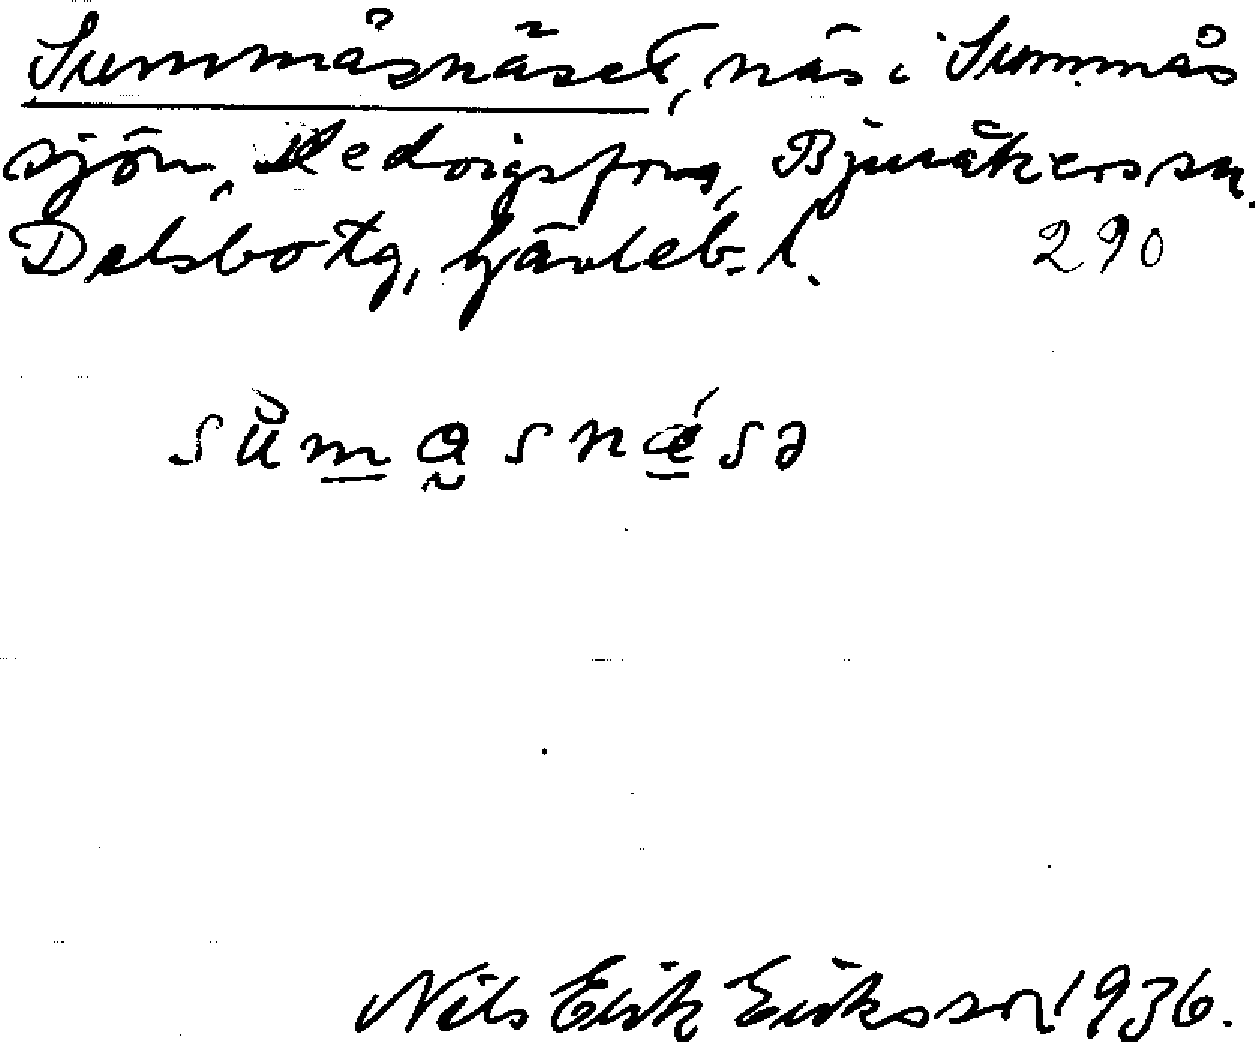 Summåsnäset, näs i Summås
sjön, Hedvigsfors, Bjuråkers sn.
Delsbo tg, Gävleb. l. 290
sùmasnǽsə
Nils Erik Eriksson 1936.